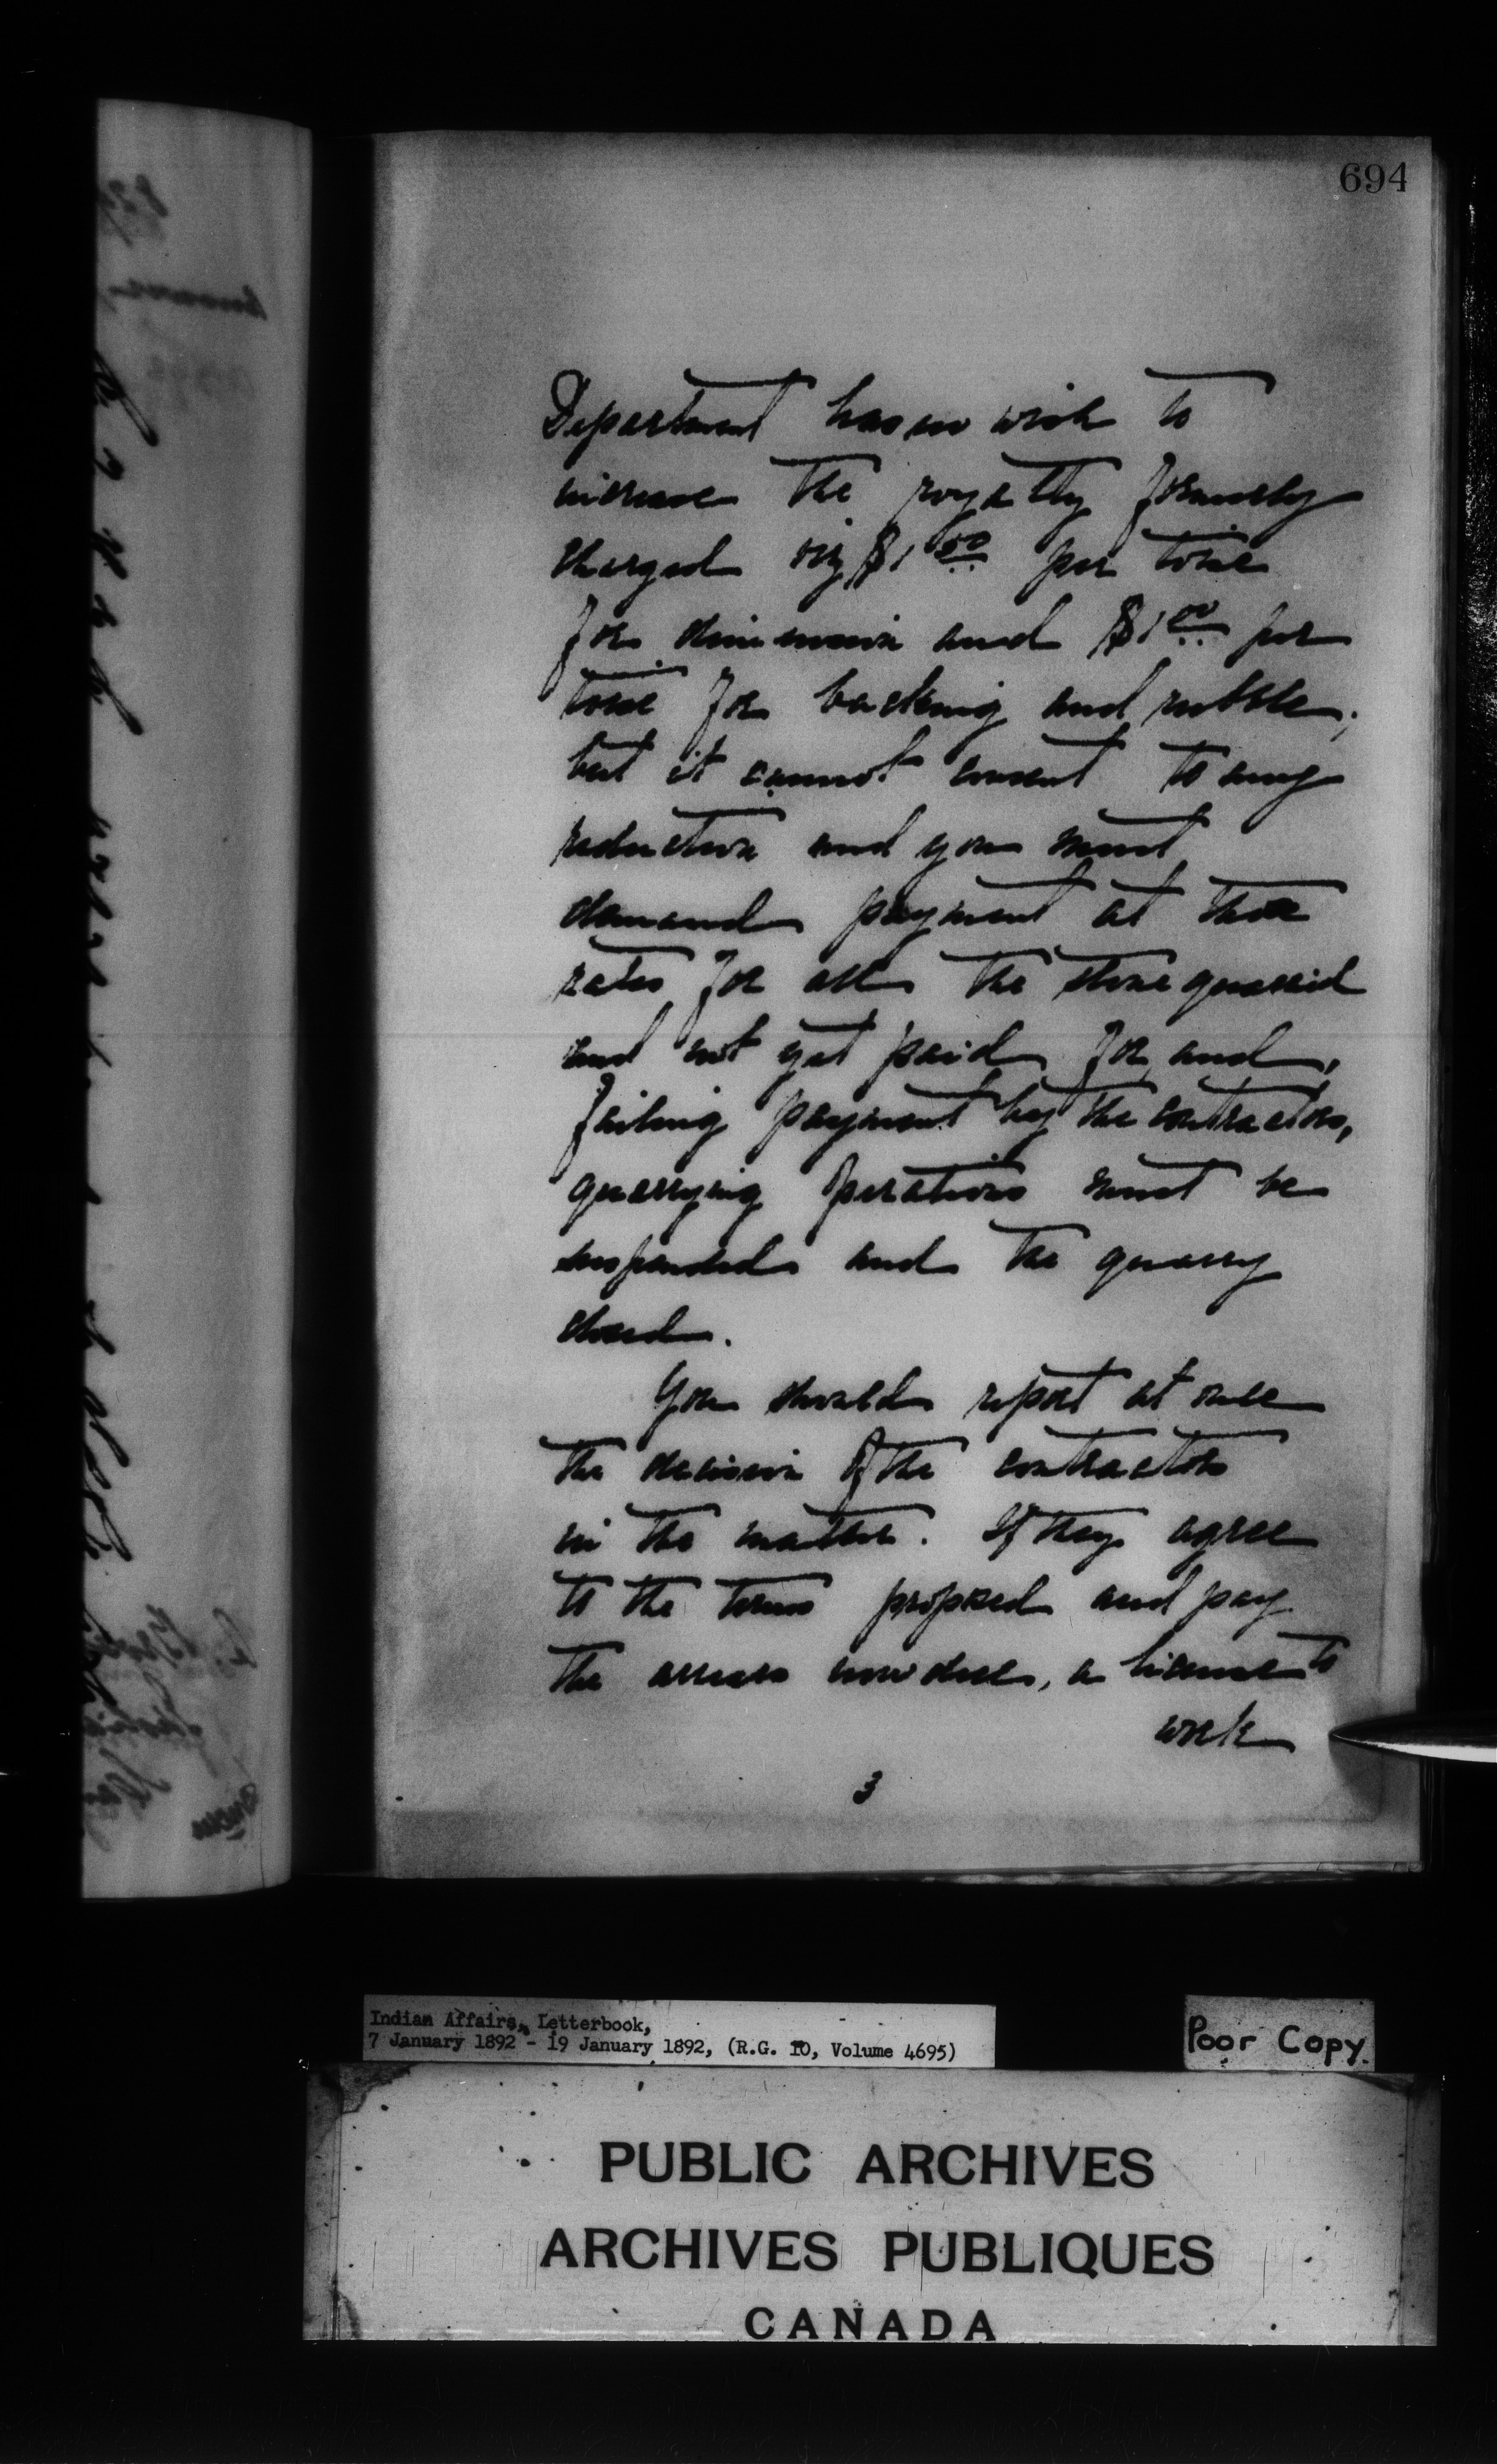 694
Department has no wish to
increase the royalty formerly
charged viz $1.50 per toise
for dimension and $1.00 per
toise for backing and rubble;
but it cannot consent to any
reduction and you must
demand payment at those
rates for all the stone quarried
and not yet paid for, and,
failing payment by the contractors,
quarrying operations must be
suspended and the quarry
closed.
You should report at once
the decision of the contractors
in the matter. If they agree
to the terms proposed and pay
the arrears now due, a license to
work
3
Indian Affairs, Letterbook,
7 January 1892 - 19 January 1892, (R.G. 10, Volume 4695)
Poor Copy.
PUBLIC ARCHIVES
ARCHIVES PUBLIQUES
CANADA